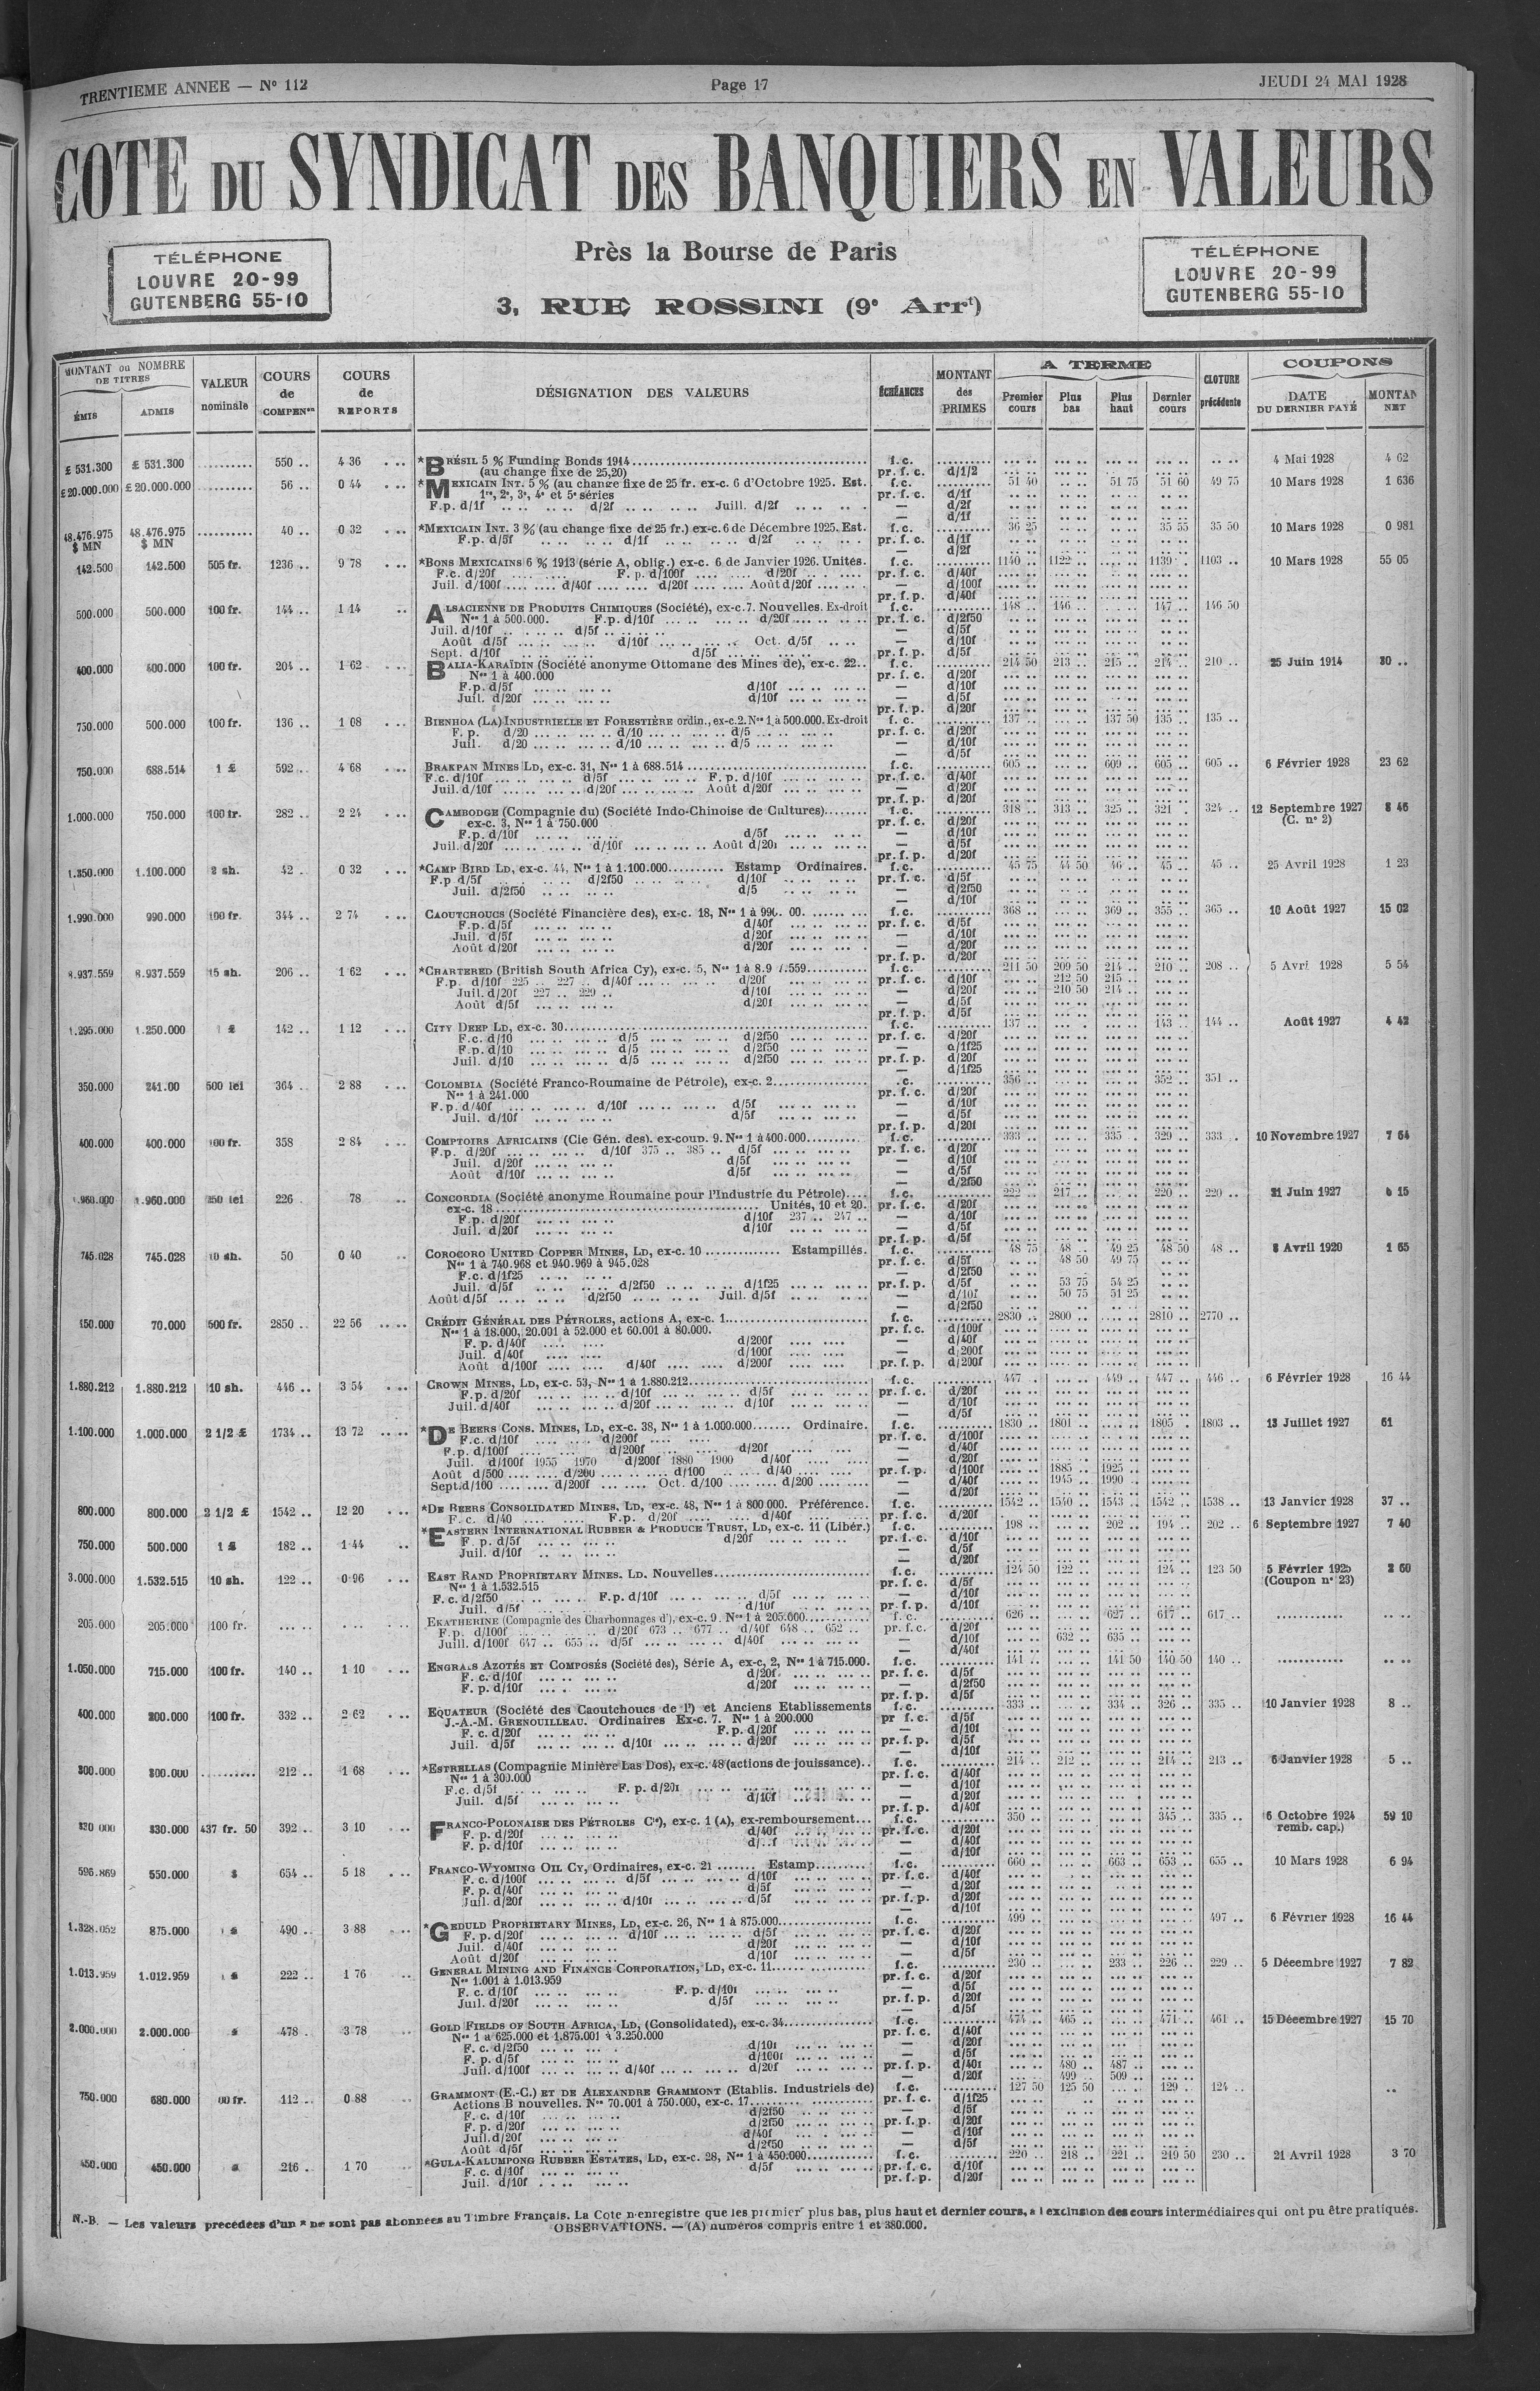 TRENTIEME ANNEE — N° 112
Page 17
JEUDI 24 MAI 1928
COTE DU SYNDICAT DES BANQUIERS EN VALEURS
TÉLÉPHONE
LOUVRE 20-99
GUTENBERG 55-10
Près la Bourse de Paris
3, RUE ROSSINI (9e Arrt)
TÉLÉPHONE
LOUVRE 20-99
GUTENBERG 55-10
MONTANT ou NOMBRE DE TITRES
ÉMIS
ADMIS
VALEUR nominale
COURS de COMPENon
COURS de REPORTS
DÉSIGNATION DES VALEURS
ÉCHÉANCES
MONTANT des PRIMES
A TERME
Premier cours
Plus bas
Plus haut
Dernier cours
CLOTURE précédente
COUPONS
DATE DU DERNIER PAYÉ
MONTAN NET
£ 531.300 £ 531.300 .......... 550 .. 4 36 *BRÉSIL 5 % Funding Bonds 1914 f. c. 4 Mai 1928 4 62
(au change fixe de 25,20) pr. f. c. d/1/2
£ 20.000.000 £ 20.000.000 .......... 56 .. 0 44 *MEXICAIN INT. 5 % (au change fixe de 25 fr. ex-c. 6 d'Octobre 1925. Est. f. c. 51 40 51 75 51 60 49 75 10 Mars 1928 1 636
1re, 2e, 3e, 4e et 5e séries pr. f. c. d/1f
F.p. d/1f .. .. d/2f .. .. Juill. d/2f — d/2f
— d/1f
48.476.975 $ MN 48.476.975 $ MN .......... 40 .. 0 32 *MEXICAIN INT. 3 % (au change fixe de 25 fr.) ex-c. 6 de Décembre 1925. Est. f. c. 36 25 35 55 35 50 10 Mars 1928 0 981
F.p. d/5f .. .. d/1f .. .. d/2f pr. f. c. d/1f
— d/2f
142.500 142.500 505 fr. 1236 .. 9 78 *BONS MEXICAINS 6 % 1913 (série A, oblig.) ex-c. 6 de Janvier 1926. Unités. f. c. 1140 .. 1122 .. 1139 . 1103 .. 10 Mars 1928 55 05
F.c. d/20f .... F. p. d/100f .... d/20f pr. f. c. d/40f
Juil. d/100f .... d/40f .... d/20f .... Août d/20f — d/100f
pr. f. p. d/40f
500.000 500.000 100 fr. 144 .. 1 14 ALSACIENNE DE PRODUITS CHIMIQUES (Société), ex-c. 7. Nouvelles. Ex-droit f. c. 148 .. 146 .. 147 .. 146 50
Nos 1 à 500.000. F.p. d/10f ... d/20f pr. f. c. d/2f50
Juil. d/10f .. d/5f — d/5f
Août d/5f ... d/10f ... Oct. d/5f — d/10f
Sept. d/10f d/5f pr. f. p. d/5f
400.000 400.000 100 fr. 204 .. 1 62 BALIA-KARAÏDIN (Société anonyme Ottomane des Mines de), ex-c. 22.. f. c. 214 50 213 .. 215 .. 214 .. 210 .. 25 Juin 1914 30 ..
Nos 1 à 400.000 pr. f. c. d/20f
F.p. d/5f d/10f — d/10f
Juil. d/20f d/10f — d/5f
pr. f. p. d/20f
750.000 500.000 100 fr. 136 .. 1 08 BIENHOA (LA) INDUSTRIELLE ET FORESTIÈRE ordin., ex-c. 2. Nos 1 à 500.000. Ex-droit f. c. 137 .. 137 50 135 .. 135 ..
F. p. d/20 ... d/10 ... d/5 pr. f. c. d/20f
Juil. d/20 ... d/10 ... d/5 — d/10f
— d/5f
750.000 688.514 1 £ 592 .. 4 68 BRAKPAN MINES LD, ex-c. 31, Nos 1 à 688.514 f. c. 605 .. 609 .. 605 .. 605 .. 6 Février 1928 23 62
F.c. d/10f ... d/5f ... F. p. d/10f pr. f. c. d/40f
Juil. d/10f ... d/20f ... Août d/20f — d/20f
pr. f. p. d/20f
1.000.000 750.000 100 fr. 282 .. 2 24 CAMBODGE (Compagnie du) (Société Indo-Chinoise de Cultures) f. c. 318 .. 313 .. 325 .. 321 . 324 .. 12 Septembre 1927 8 46
ex-c. 3, Nos 1 à 750.000 pr. f. c. d/20f (C. n° 2)
F.p. d/10f d/5f — d/10f
Juil. d/20f ... d/10f ... Août d/20f — d/5f
pr. f. p. d/20f
1.350.000 1.100.000 2 sh. 42 .. 0 32 *CAMP BIRD LD, ex-c. 44, Nos 1 à 1.100.000 Estamp Ordinaires. f. c. 45 75 44 50 46 .. 45 .. 45 .. 25 Avril 1928 1 23
F.p d/5f d/2f50 d/10f pr. f. c. d/5f
Juil. d/2f50 d/5 — d/2f50
— d/10f
1.990.000 990.000 100 fr. 344 .. 2 74 CAOUTCHOUCS (Société Financière des), ex-c. 18, Nos 1 à 990. 00. f. c. 368 .. 369 .. 355 .. 365 .. 10 Août 1927 15 02
F.p. d/5f d/40f pr. f. c. d/5f
Juil. d/5f d/20f — d/10f
Août d/20f d/20f — d/20f
pr. f. p. d/20f
8.937.559 8.937.559 15 sh. 206 .. 1 62 *CHARTERED (British South Africa Cy), ex-c. 5, Nos 1 à 8.9 7.559 f. c. 211 50 209 50 214 .. 210 .. 208 .. 5 Avri 1928 5 54
F.p. d/10f 225 .. 227 .. d/40f ... d/20f pr. f. c. d/10f 212 50 215 ..
Juil. d/20f 227 .. 229 .. d/10f — d/20f 210 50 214 ..
Août d/5f d/20f — d/5f
pr. f. p. d/5f
1.295.000 1.250.000 1 £ 142 .. 1 12 CITY DEEP LD, ex-c. 30 f. c. 137 .. 143 .. 144 .. Août 1927 4 42
F.c. d/10 ... d/5 ... d/2f50 pr. f. c. d/20f
F.p. d/10 ... d/5 ... d/2f50 — d/1f25
Juil. d/10 ... d/5 ... d/2f50 pr. f. p. d/20f
— d/1f25
350.000 241.00 500 lei 364 .. 2 88 COLOMBIA (Société Franco-Roumaine de Pétrole), ex-c. 2 .c. 356 .. 352 .. 351 ..
Nos 1 à 241.000 pr. f. c. d/20f
F.p. d/40f ... d/10f ... d/5f — d/10f
Juil. d/10f d/5f — d/5f
pr. f. p. d/20f
400.000 400.000 100 fr. 358 2 84 COMPTOIRS AFRICAINS (Cie Gén. des). ex-coup. 9. Nos 1 à 400.000 f. c. 333 .. 335 .. 329 .. 333 .. 10 Novembre 1927 7 64
F.p. d/20f ... d/10f 375 .. 385 .. d/5f pr. f. c. d/20f
Juil. d/20f d/5f — d/10f
Août d/10f d/5f — d/5f
— d/2f50
1.960.000 1.960.000 250 lei 226 78 CONCORDIA (Société anonyme Roumaine pour l'Industrie du Pétrole) f. c. 222 .. 217 .. 220 .. 220 .. 21 Juin 1927 6 15
ex-c. 18 Unités, 10 et 20. pr. f. c. d/20f
F.p. d/20f d/10f 237 .. 247 .. — d/10f
Juil. d/20f d/10f — d/5f
pr. f. p. d/5f
745.028 745.028 10 sh. 50 0 40 COROCORO UNITED COPPER MINES, LD, ex-c. 10 Estampillés. f. c. 48 75 48 .. 49 25 48 50 48 .. 8 Avril 1920 1 65
Nos 1 à 740.968 et 940.969 à 945.028 pr. f. c. d/5f 48 50 49 75
F.c. d/1f25 — d/2f50
Juil. d/5f d/2f50 d/1f25 pr. f. p. d/5f 53 75 54 25
Août d/5f d/2f50 Juil. d/5f — d/10f 50 75 51 25
— d/2f50
150.000 70.000 500 fr. 2850 .. 22 56 CRÉDIT GÉNÉRAL DES PÉTROLES, actions A, ex-c. 1 f. c. 2830 .. 2800 .. 2810 .. 2770 ..
Nos 1 à 18.000, 20.001 à 52.000 et 60.001 à 80.000. pr. f. c. d/100f
F. p. d/40f d/200f — d/40f
Juil. d/40f d/100f — d/200f
Août d/100f .... d/40f .... d/200f pr. f. p. d/200f
1.880.212 1.880.212 10 sh. 446 .. 3 54 CROWN MINES, LD, ex-c. 53, Nos 1 à 1.880.212 f. c. 447 . 449 .. 447 .. 446 .. 6 Février 1928 16 44
F.p. d/20f ... d/10f ... d/5f pr. f. c. d/20f
Juil. d/40f ... d/20f ... d/10f — d/10f
— d/5f
1.100.000 1.000.000 2 1/2 £ 1734 .. 13 72 *DE BEERS CONS. MINES, LD, ex-c. 38, Nos 1 à 1.000.000 Ordinaire. f. c. 1830 .. 1801 .. 1805 .. 1803 .. 13 Juillet 1927 61
F.c. d/10f d/200f pr. f. c. d/100f
F.p. d/100f d/200f d/20f — d/40f
Juil. d/100f 1955 1970 d/200f 1880 1900 d/40f — d/20f
Août d/500 .... d/200 .... d/100 .... d/40 pr. f. p. d/100f 1885 .. 1925 ..
Sept. d/100 .... d/200f .... Oct. d/100 .... d/200 — d/40f 1945 .. 1990 ..
— d/20f
800.000 800.000 2 1/2 £ 1542 .. 12 20 *DE BEERS CONSOLIDATED MINES, LD, ex-c. 48, Nos 1 à 800 000. Préférence. f. c. 1542 .. 1540 .. 1543 .. 1542 .. 1538 .. 13 Janvier 1928 37 ..
F. c. d/40 F.p. d/20f d/40f pr. f. c. d/20f
750.000 500.000 1 £ 182 .. 1 44 *EASTERN INTERNATIONAL RUBBER & PRODUCE TRUST, LD, ex-c. 11 (Libér.) f. c. 198 .. 202 .. 194 .. 202 .. 6 Septembre 1927 7 40
F. p. d/5f d/20f pr. f. c. d/10f
Juil. d/10f — d/5f
— d/20f
3.000.000 1.532.515 10 sh. 122 .. 0 96 EAST RAND PROPRIETARY MINES. LD. Nouvelles f. c. 124 50 122 .. 124 .. 123 50 5 Février 1925 2 60
Nos 1 à 1.532.515 pr. f. c. d/5f (Coupon n° 23)
F. c. d/2f50 F.p. d/10f d/5f — d/10f
Juil. d/5f d/10f pr. f. p. d/10f
205.000 205.000 100 fr. EKATHERINE (Compagnie des Charbonnages d'), ex-c. 9. Nos 1 à 205.000 f. c. 626 .. 627 .. 617 .. 617 ..
F.p. d/100f d/20f 673 .. 677 .. d/40f 648 .. 652 .. pr. f. c. d/20f
Juill. d/100f 647 .. 655 .. d/5f d/40f — d/10f 632 .. 635 ..
— d/40f
1.050.000 715.000 100 fr. 140 .. 1 10 ENGRAIS AZOTÉS ET COMPOSÉS (Société des), Série A, ex-c. 2, Nos 1 à 715.000. f. c. 141 .. 141 50 140 50 140 ..
F. c. d/10f d/20f pr. f. c. d/5f
F. p. d/10f d/20f — d/2f50
pr. f. p. d/5f
400.000 200.000 100 fr. 332 .. 2 62 EQUATEUR (Société des Caoutchoucs de l') et Anciens Etablissements f. c. 333 .. 334 .. 326 .. 335 .. 10 Janvier 1928 8 ..
J.-A.-M. GRENOUILLEAU. Ordinaires Ex-c. 7. Nos 1 à 200.000 pr f. c. d/5f
F. c. d/20f F.p. d/20f — d/10f
Juil. d/5f d/10f d/20f pr. f. p. d/5f
— d/10f
300.000 300.000 .......... 212 .. 1 68 *ESTRELLAS (Compagnie Minière Las Dos), ex-c. 48 (actions de jouissance) f. c. 214 .. 212 .. 214 .. 213 .. 6 Janvier 1928 5 ..
Nos 1 à 300.000 pr. f. c. d/40f
F.c. d/5f F. p. d/20f — d/10f
Juil. d/5f d/10f — d/20f
pr. f. p. d/40f
330 000 330.000 437 fr. 50 392 .. 3 10 FRANCO-POLONAISE DES PÉTROLES Cie), ex-c. 1 (A), ex-remboursement f. c. 350 .. 345 .. 335 .. 6 Octobre 1924 59 10
F. p. d/20f d/40f pr. f. c. d/20f remb. cap.)
F. p. d/10f — d/40f
— d/10f
596.869 550.000 $ 654 .. 5 18 FRANCO-WYOMING OIL CY, Ordinaires, ex-c. 21 Estamp. f. c. 660 .. 663 .. 653 .. 655 .. 10 Mars 1928 6 94
F. c. d/100f d/5f d/10f pr. f. c. d/40f
F. p. d/40f d/5f — d/20f
Juil. d/20f d/10f d/5f pr. f. p. d/20f
— d/10f
1.328.052 875.000 1 £ 490 .. 3 88 *GEDULD PROPRIETARY MINES, LD, ex-c. 26, Nos 1 à 875.000 f. c. 499 .. 497 .. 6 Février 1928 16 44
F. p. d/20f d/10f d/5f pr. f. c. d/20f
Juil. d/40f d/20f — d/10f
Août d/20f d/10f — d/5f
1.013.959 1.012.959 1 £ 222 .. 1 76 GENERAL MINING AND FINANCE CORPORATION, LD, ex-c. 11 f. c. 230 .. 233 .. 226 .. 229 .. 5 Décembre 1927 7 82
Nos 1.001 à 1.013.959 pr. f. c. d/20f
F. c. d/10f F. p. d/10f — d/5f
Juil. d/20f d/5f pr. f. p. d/20f
— d/5f
2.000.000 2.000.000 478 .. 3 78 GOLD FIELDS OF SOUTH AFRICA, LD, (Consolidated), ex-c. 34 f. c. 474 .. 465 .. 471 .. 461 .. 15 Décembre 1927 15 70
Nos 1 à 625.000 et 1.875.001 à 3.250.000 pr. f. c. d/40f
F. c. d/2f50 d/10f — d/20f
F. p. d/5f d/100f — d/5f
Juil. d/100f d/40f d/20f pr. f. p. d/40f 480 .. 487 ..
— d/20f 499 .. 509 ..
750.000 680.000 00 fr. 112 .. 0 88 GRAMMONT (E.-C.) ET DE ALEXANDRE GRAMMONT (Etablis. Industriels de) f. c. 127 50 125 50 129 .. 124 ..
Actions B nouvelles. Nos 70.001 à 750.000, ex-c. 17 pr. f. c. d/1f25
F. c. d/10f d/2f50 — d/5f
F. p. d/20f d/2f50 pr. f. p. d/20f
Juil. d/20f d/40f — d/10f
Août d/5f d/2f50 — d/5f
450.000 450.000 216 .. 1 70 *GULA-KALUMPONG RUBBER ESTATES, LD, ex-c. 28, Nos 1 à 450.000 f. c. 220 .. 218 .. 221 .. 219 50 230 .. 21 Avril 1928 3 70
F. c. d/10f d/5f pr. f. c. d/10f
Juil. d/10f pr. f. p. d/20f
N.-B. — Les valeurs précédées d'un * ne sont pas abonnées au Timbre Français. La Cote n'enregistre que les premier plus bas, plus haut et dernier cours, à l'exclusion des cours intermédiaires qui ont pu être pratiqués.
OBSERVATIONS. — (A) numéros compris entre 1 et 380.000.